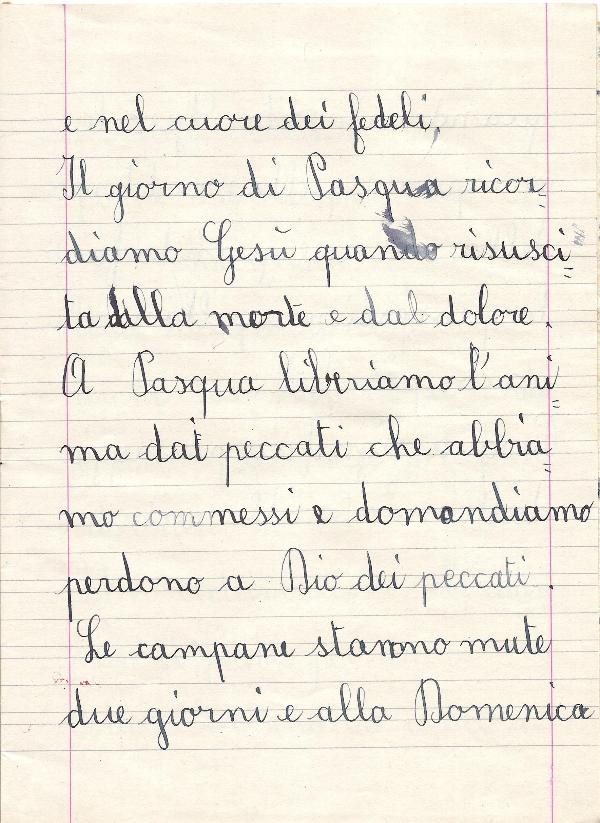 e nel cuore dei fedeli.
Il giorno di Pasqua ricor_
diamo Gesù quando risusci=
ta dalla morte e dal dolore.
A Pasqua liberiamo l'ani=
ma dai peccati che abbia=
mo commessi e domandiamo
perdono a Dio dei peccati.
Le campane stanno mute
due giorni e alla Domenica